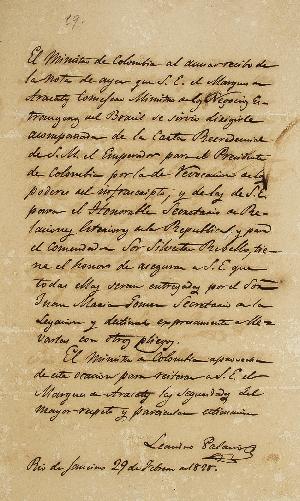 19.
El Ministro de Colombia al acusar recibo de
la nota de ayer que S. E. el Marques de
Aracaty Consejero Ministro de los Negocios Es-
trangeros del Brasil se sirvio dirigirle
acompañada de la Carta Recredencial
de S. M. el Emperador para el Presidente
de Colombia por la de Revocacion de los
poderes del infrascripto, y de las de S. E.
para el Honorable Secretario de Re-
laciones Exteriores de la Republica, y para
el Comendador Sor Silvestre Rebello, tie-
ne el honor de asegurar a S. E. que
todas ellas seran entregadas por el Sor
Juan Maria Gomez Secretario de la
Legacion y destinado expresamente a lle-
varlas con otros pliegos.
El Ministro de Colombia aprovecha
de esta ocasion para reiterar a S. E. el
Marques de Aracaty las seguridades del
mayor respeto y particular estimacion
Leandro Palacios
Rio de Janeiro 29 de Febro de 1828.